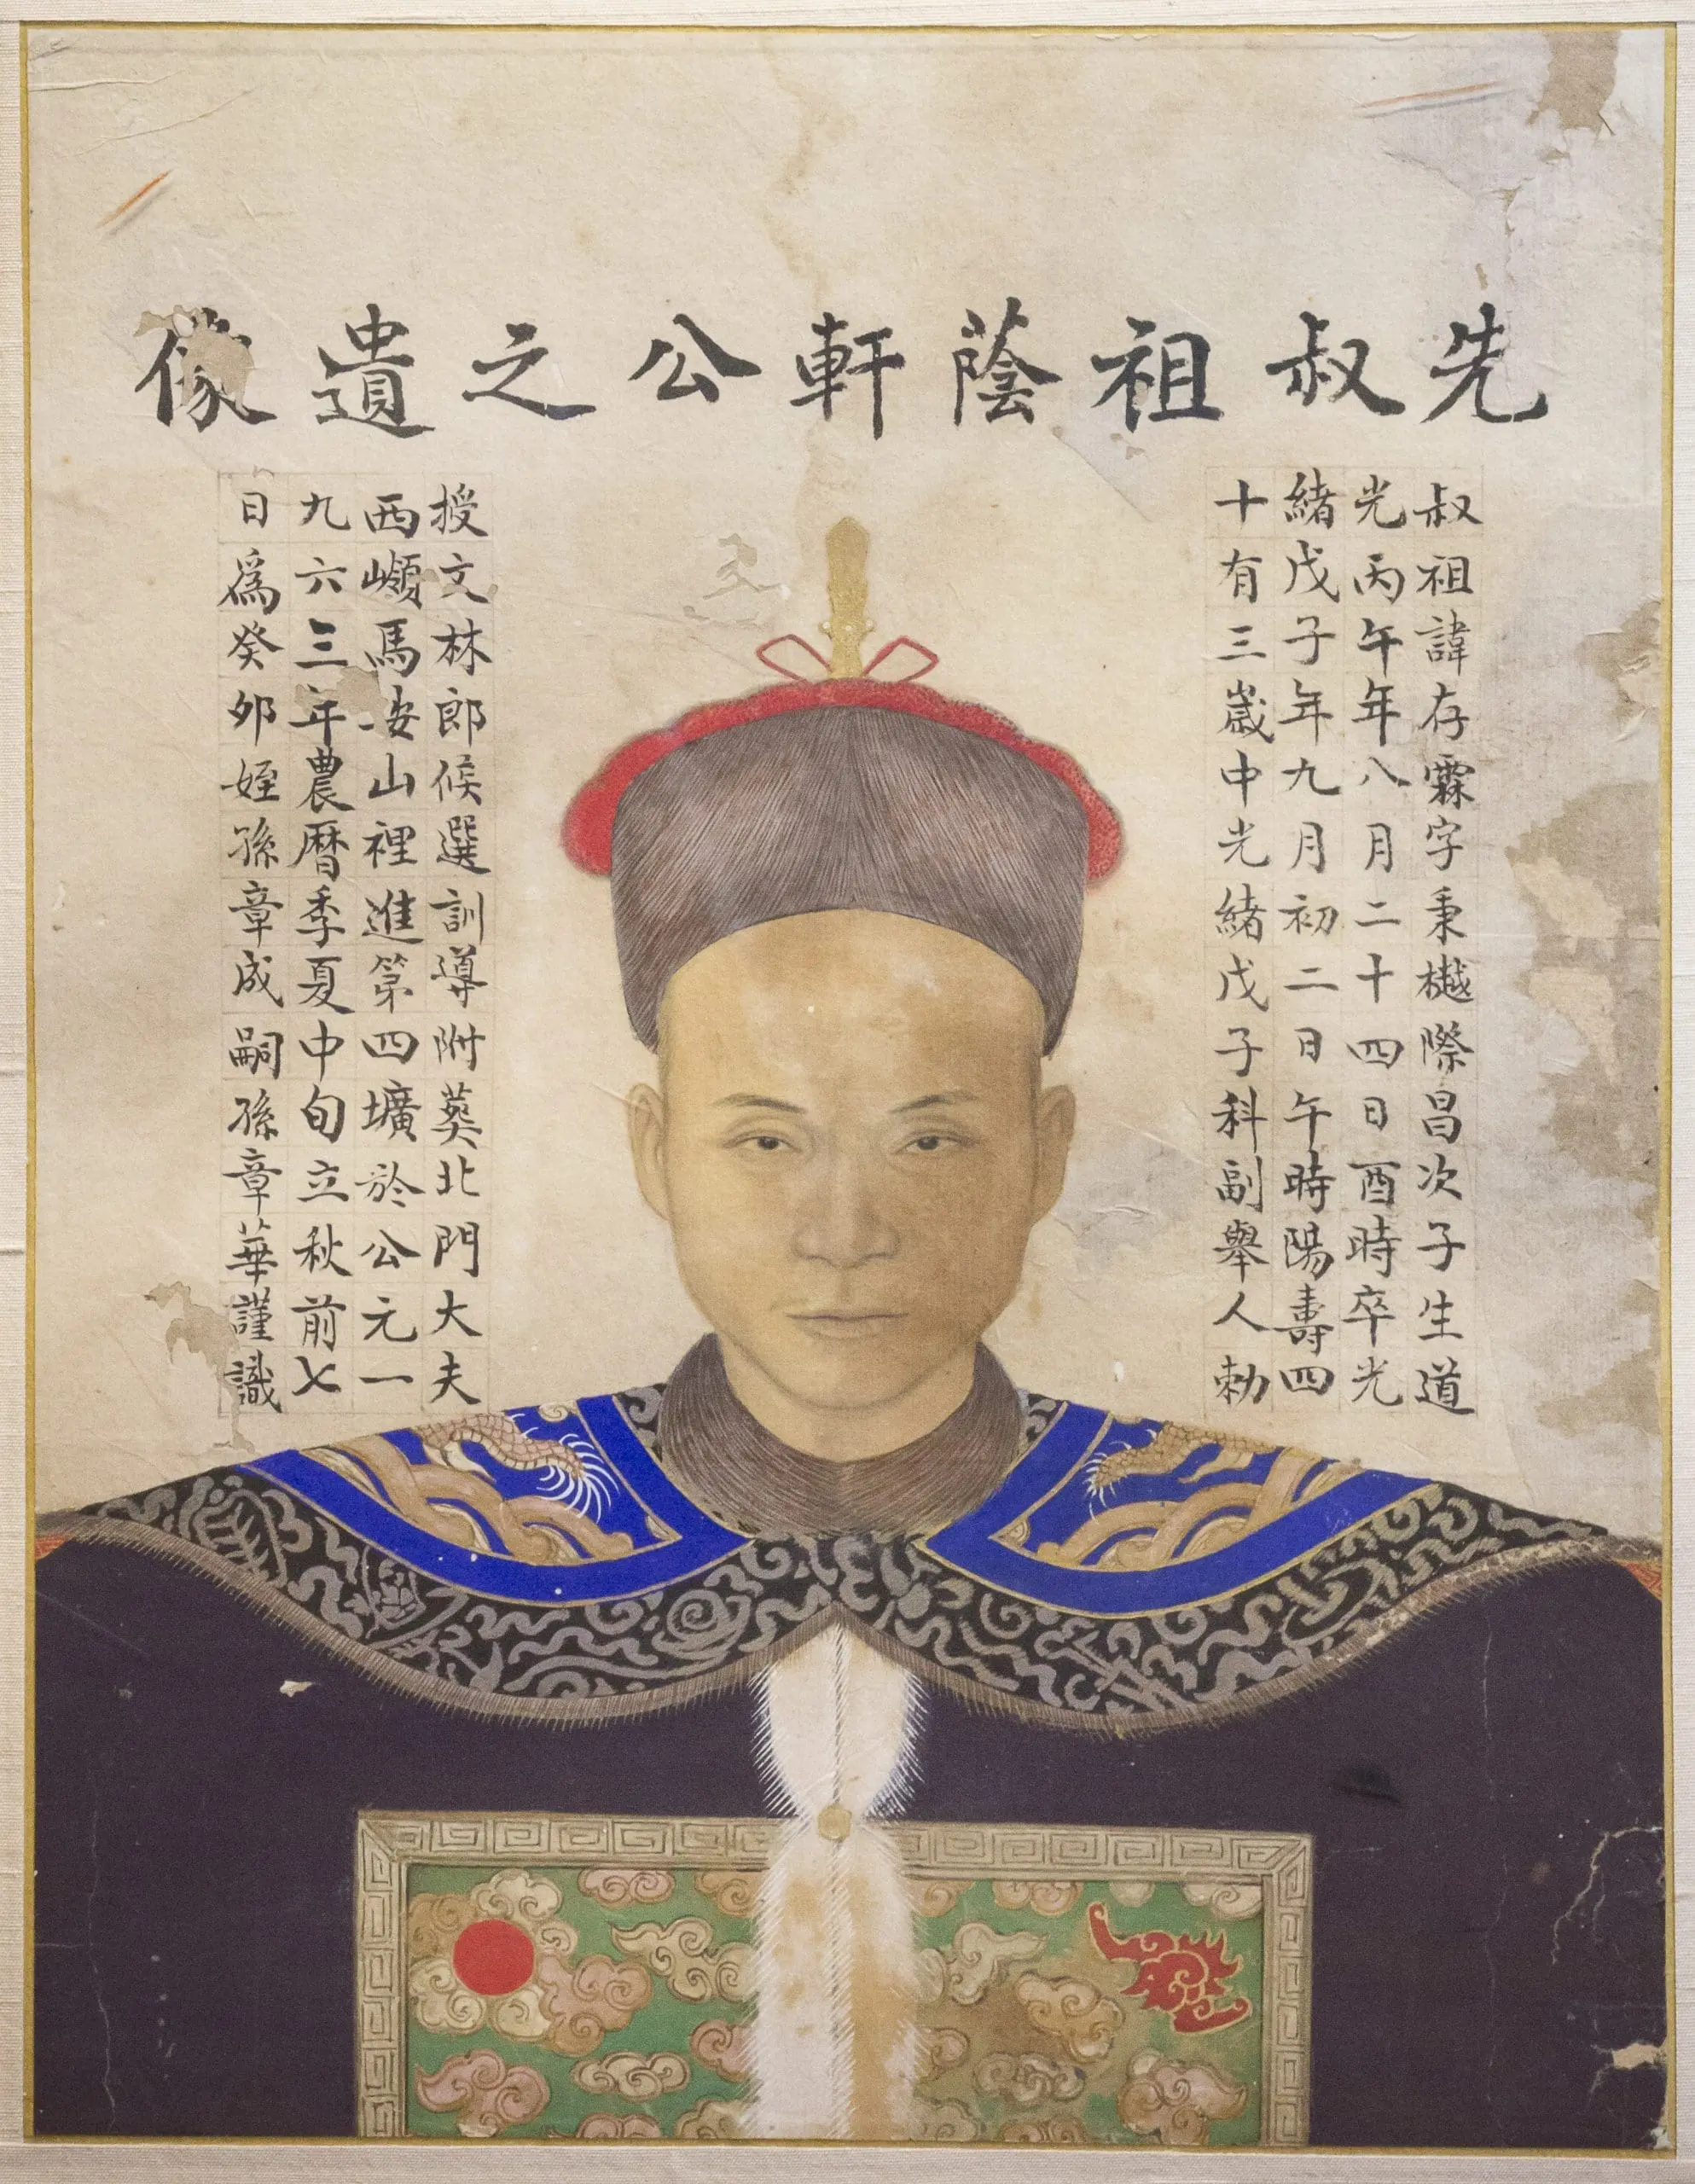 先叔祖蔭軒公之遺像
叔祖諱存霖字秉樾際昌次子生道
光丙午年八月二十四日酉時卒光
緒戊子年九月初二日午時陽壽四
十有三歲中光緒戊子科副舉人勅
授文林郎候選訓導附葬北門大夫
西巔馬安山裡進第四壙於公元一
九六三年農曆季夏中旬立秋前七
日為癸卯姪孫章成嗣孫章華謹識